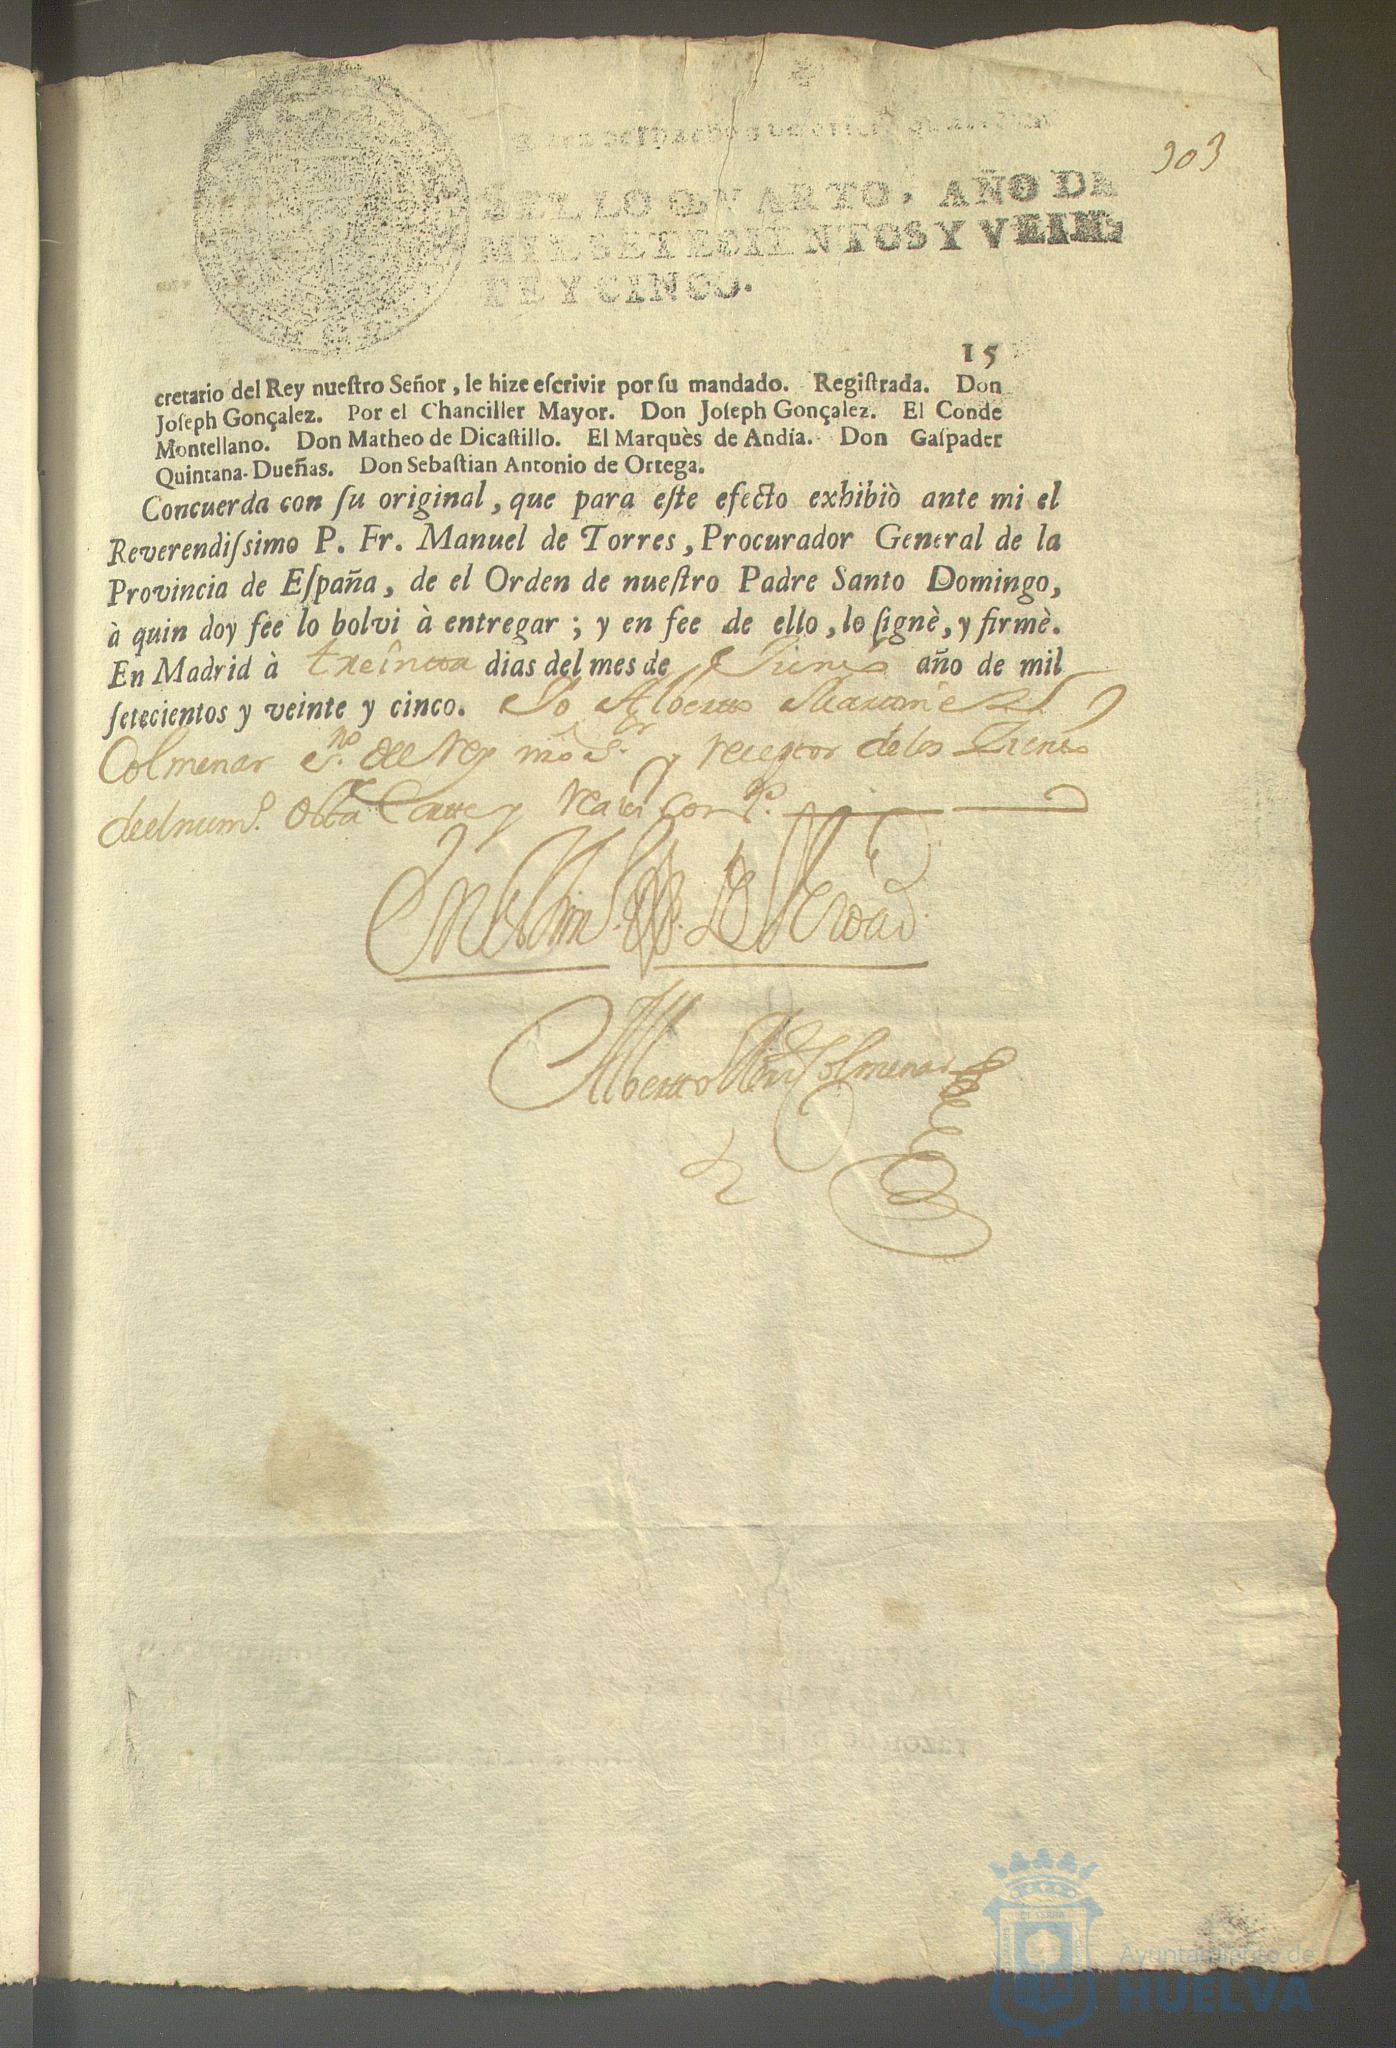 Para despachos de oficio quatro mrs.
903
SELLO QVARTO, AÑO DE
MIL SETECIENTOS Y VEIN-
TE Y CINCO.
15
cretario del Rey nuestro Señor, le hize escrivir por su mandado. Registrada. Don
Joseph Gonçalez. Por el Chanciller Mayor. Don Joseph Gonçalez. El Conde
Montellano. Don Matheo de Dicastillo. El Marquès de Andia. Don Gaspader
Quintana-Dueñas. Don Sebastian Antonio de Ortega.
Concuerda con su original, que para este efecto exhibiò ante mi el
Reverendissimo P. Fr. Manuel de Torres, Procurador General de la
Provincia de España, de el Orden de nuestro Padre Santo Domingo,
à quin doy fee lo bolvi à entregar; y en fee de ello, lo signè, y firmè.
En Madrid à treinta dias del mes de Junio año de mil
setecientos y veinte y cinco. Yo Alberto Martinez
Colmenar s.no del Rey nrõ s.or y receptor de los Ziento
del num.o desta Corte y
En testim.o de Verdad.
Alberto Mrñz Colmenar
Ayuntamiento de
HUELVA